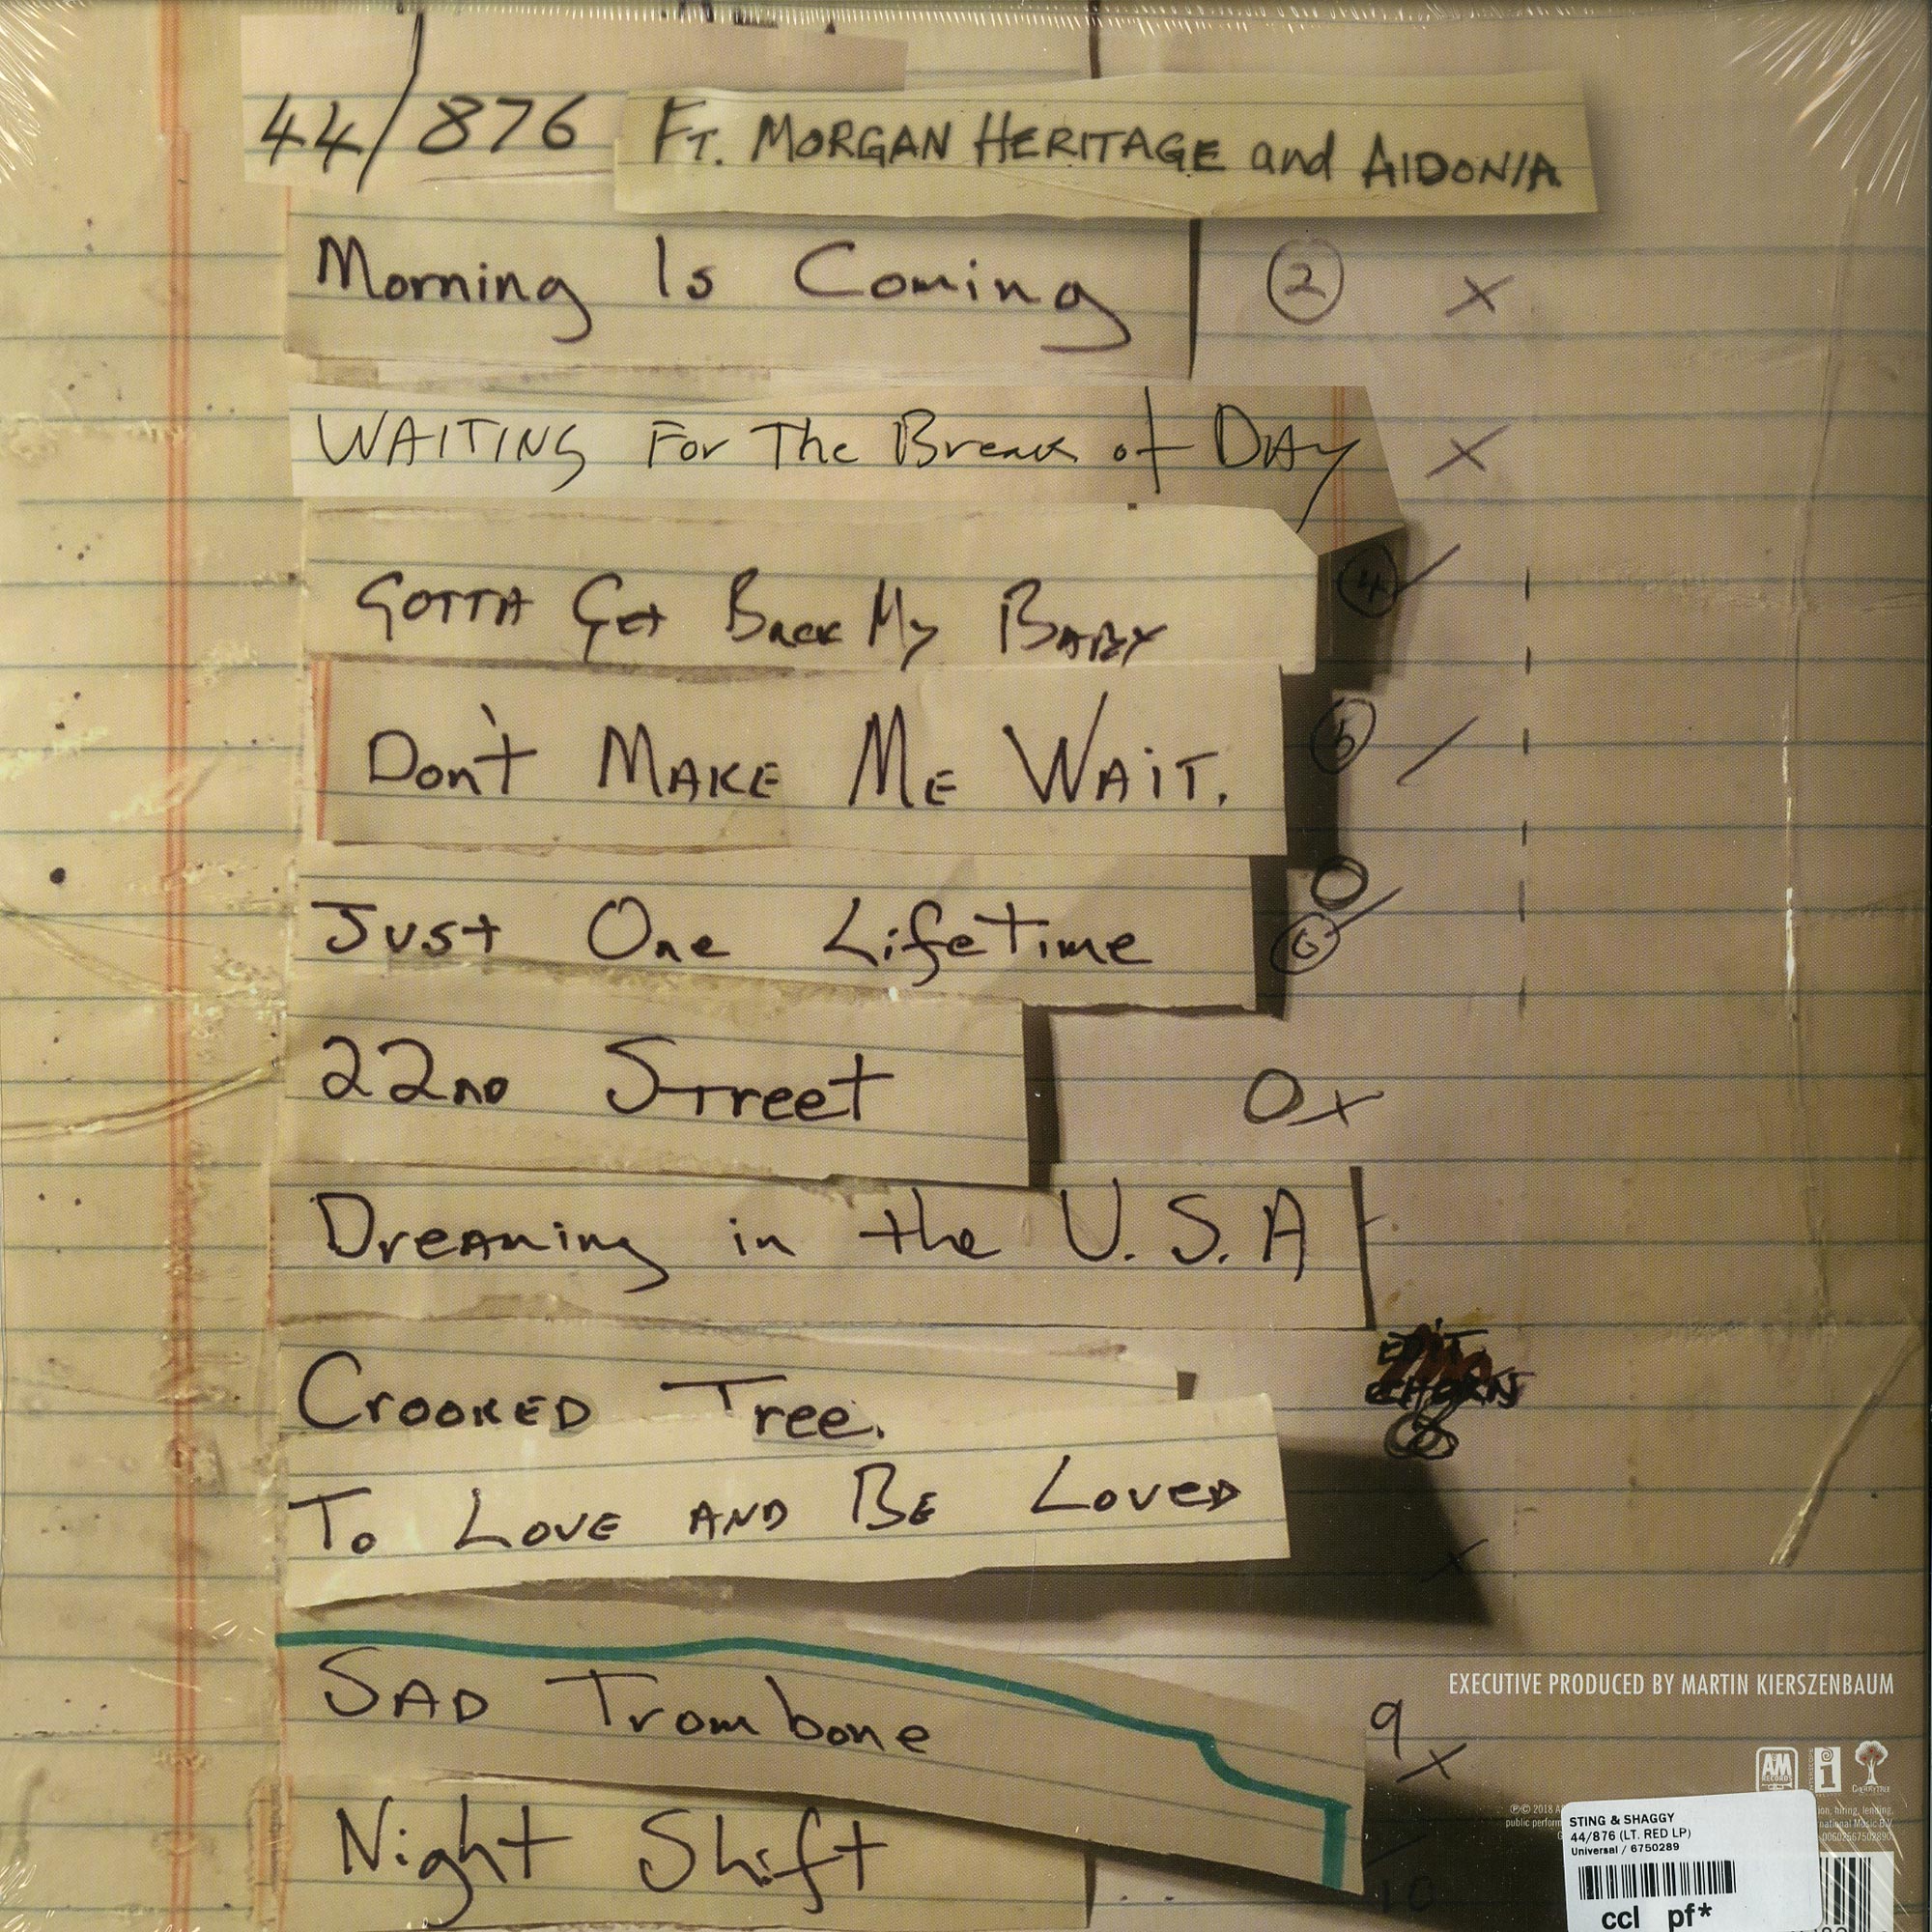 44/876 FT. MORGAN HERITAGE and AIDONIA
Morning Is Coming ② X
WAITING For The Break of DAY X
GOTTA Get Back My BABY ④
Don't MAKE ME WAiT. 5
Just One Lifetime 6
22ND Street O X
Dreaming in the U.S.A
CROOKED Tree.
EDIT
8
To LOVE AND BE LOVED X
SAD Trombone 9 X
Night Shift 10
EXECUTIVE PRODUCED BY MARTIN KIERSZENBAUM
AM
RECORDS
INTERSCOPE
CHERRYTREE
℗© 2018
ion, hiring, lending,
public perform
national Music B.V.
00602567502890
STING & SHAGGY
44/876 (LT. RED LP)
Universal / 6750289
ccl pf*